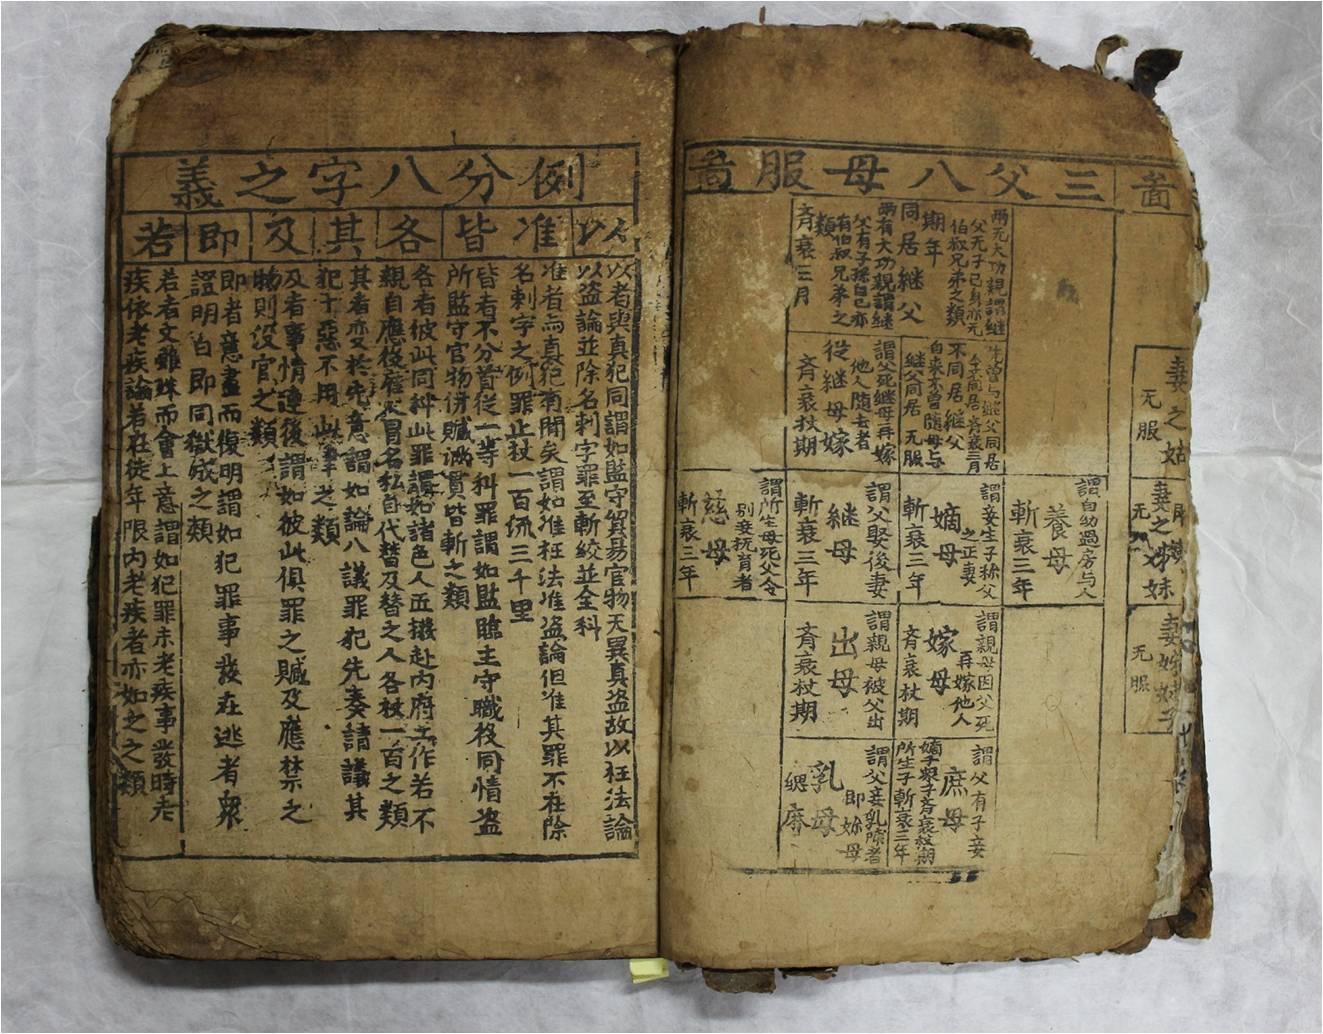 啚
妻之姑
无服
妻之姊妹
无
妻姊妹子
无服
三父八母服啚
兩无大功親謂継
父无子己身亦无
伯叔兄弟之類
期年
同居継父
兩有大功親謂継
父有子孫自己亦
有伯叔兄弟之
類
齊衰三月
先曾与継父同居
今不同居齊衰三月
不同居継父
自来不曾随母与
継父同居 无服
謂父死継母再嫁
他人随去者
從継母嫁
齊衰杖期
謂自幼過房与人
養母
斬衰三年
謂妾生子称父
之正妻
嫡母
斬衰三年
謂父娶後妻
継母
斬衰三年
謂所生母死父令
别妾抚育者
慈母
斬衰三年
謂親母因父死
再嫁他人
嫁母
齊衰杖期
謂親母被父出
出母
齊衰杖期
謂父有子妾
庶母
嫡子衆子齊衰杖期
所生子斬衰三年
謂父妾乳哺者
即妳母
乳母
緦麻
例分八字之義
以准皆各其及即若
以者與真犯同謂如監守貿易官物无異真盗故以枉法論
以盗論並除名刺字罪至斬絞並全科
准者與真犯有間矣謂如准枉法准盗論但准其罪不在除
名刺字之例罪止杖一百流三千里
皆者不分首從一等科罪謂如監臨主守職役同情盗
所監守官物併贓滿貫皆斬之類
各者彼此同科此罪謂如諸色人匠撥赴内府工作若不
親自應役雇人冒名私自代替及替之人各杖一百之類
其者变於先意謂如論八議罪犯先奏請議其
犯十惡不用此律之類
及者事情連後謂如彼此俱罪之贓及應禁之
物則没官之類
即者意盡而復明謂如犯罪事發在逃者衆
證明白即同獄成之類
若者文雖殊而會上意謂如犯罪未老疾事發時老
疾依老疾論若在徒年限内老疾者亦如之之類